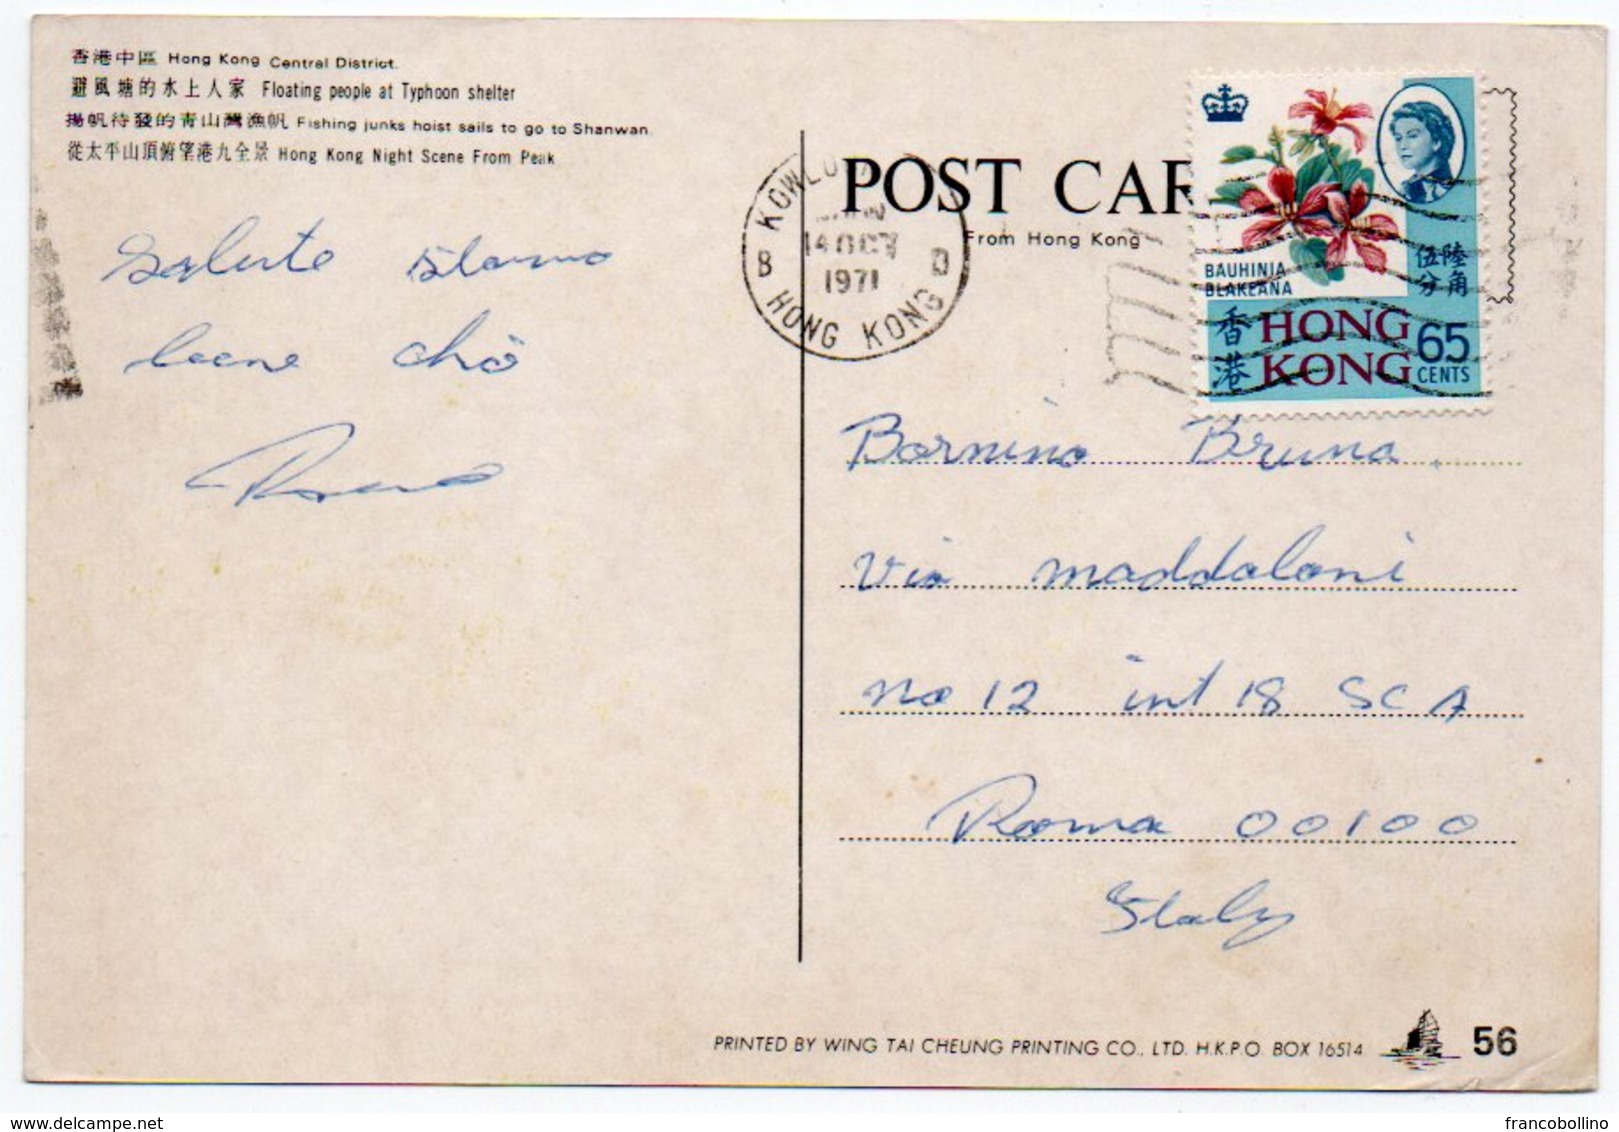 香港中區 Hong Kong Central District.
避風塘的水上人家 Floating people at Typhoon shelter
揚帆待發的靑山灣漁帆 Fishing junks hoist sails to go to Shanwan
從太平山頂俯望港九全景 Hong Kong Night Scene From Peak
POST CAR
From Hong Kong
KOWLO
14 OCT
1971
B
HONG KONG
BAUHINIA
BLAKEANA
伍分
陸角
香港
HONG
KONG
65
CENTS
Salute
chò
Bornino Bruna
via maddaloni
no 12 int 18 SC A
Roma 00100
Italy
PRINTED BY WING TAI CHEUNG PRINTING CO., LTD. H.K.P.O. BOX 16514
56
francobollino